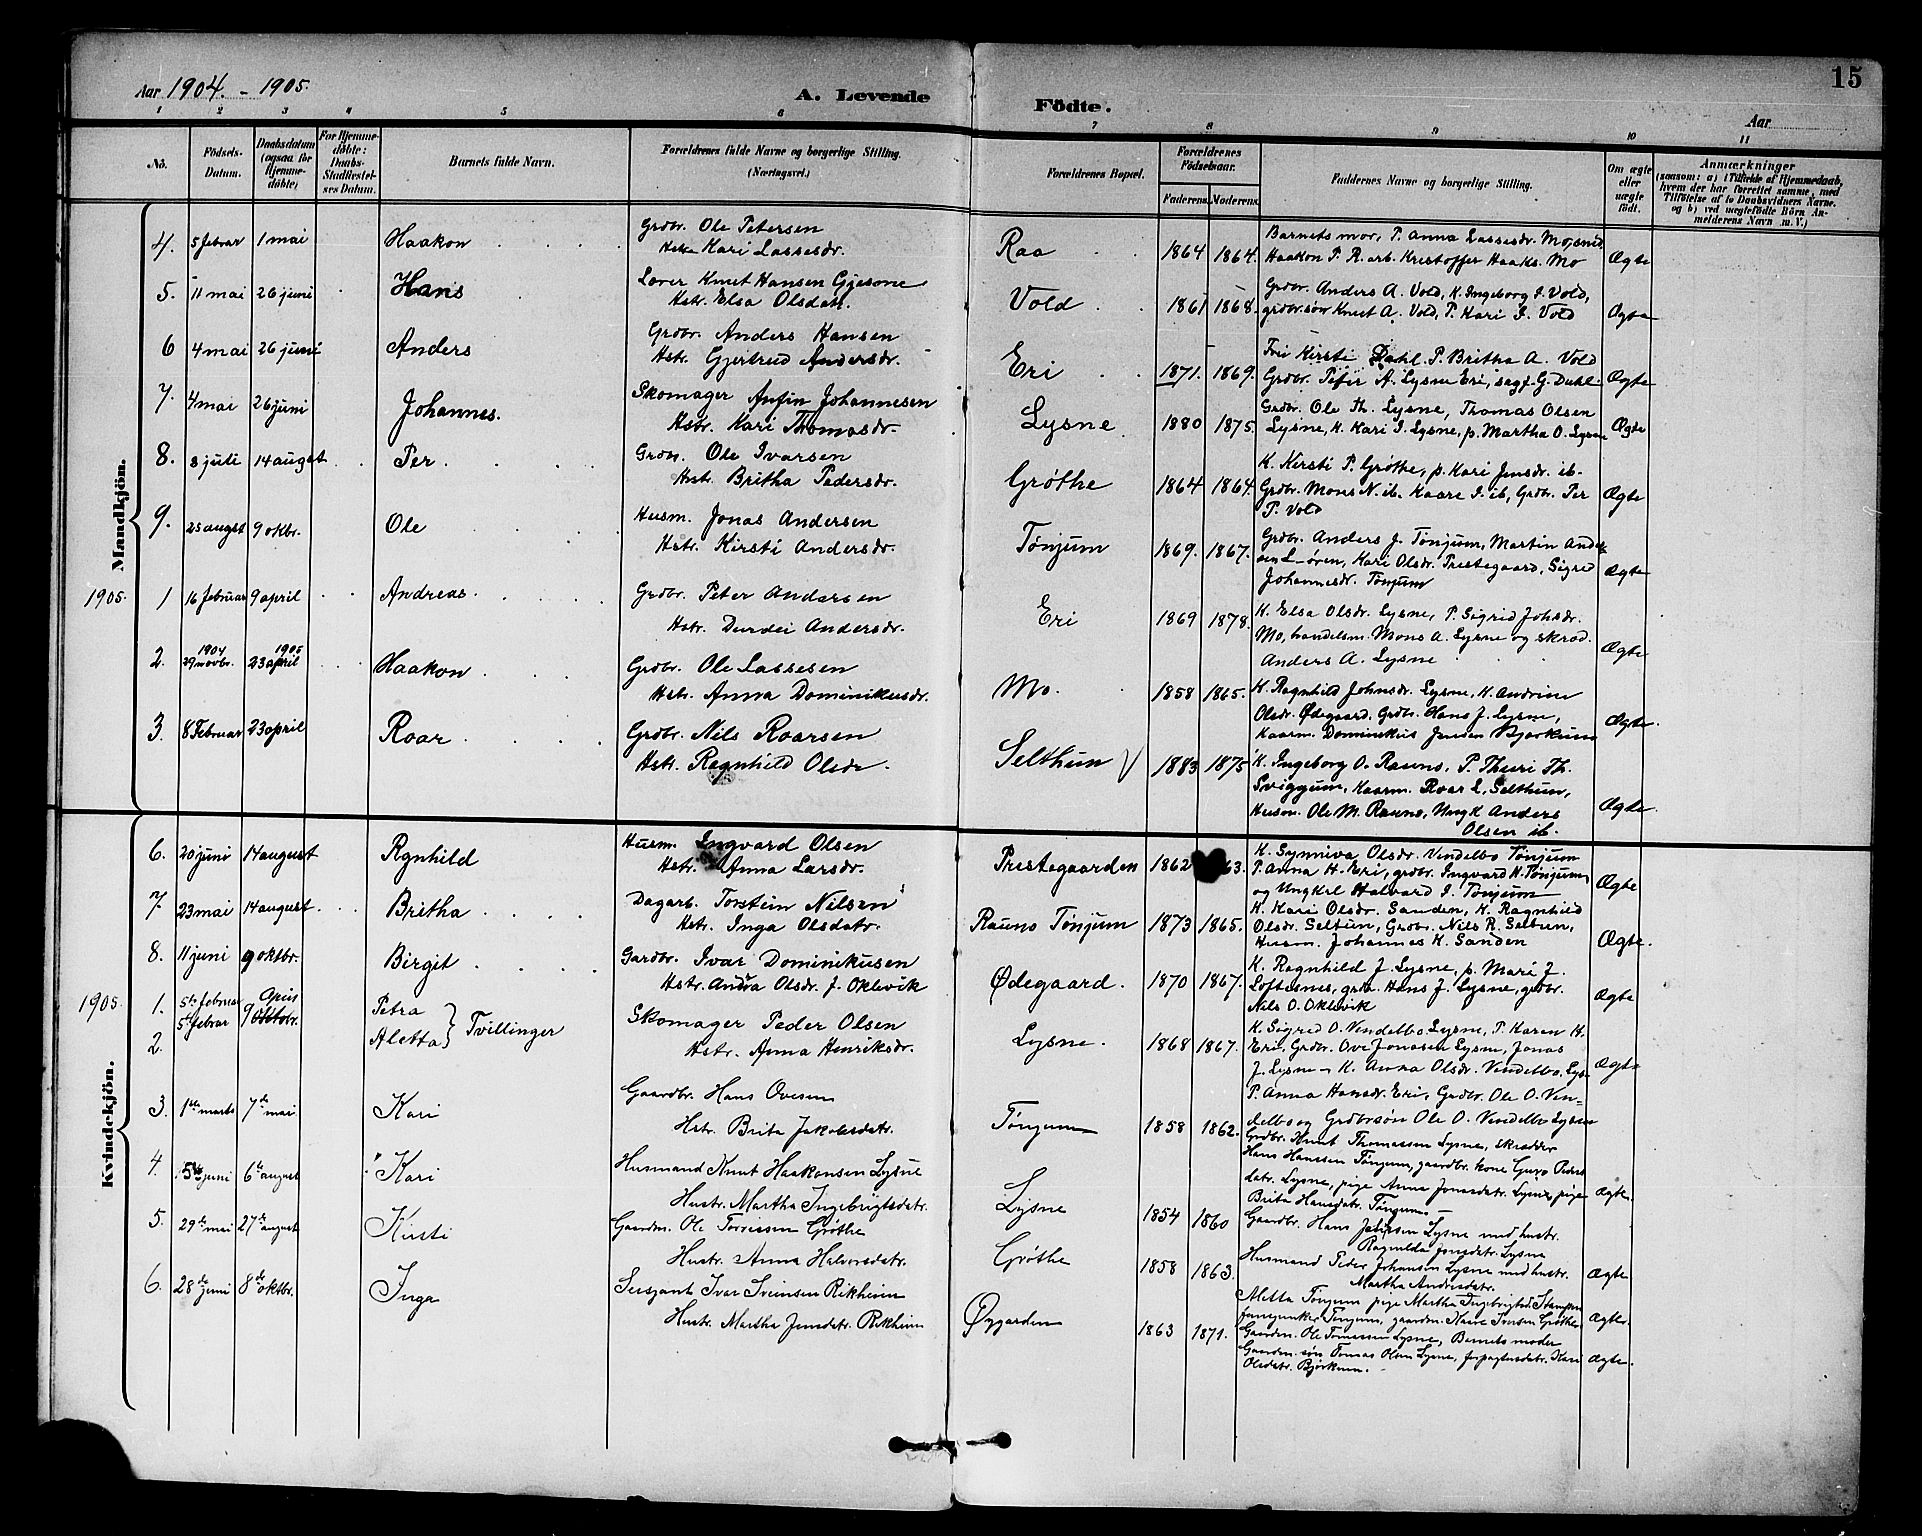 Aar 1904. - 1905.
A. Levende
Födte.
Aar
15
1 2 3 4 5 6 7 8 9 10 11
No.
Födsels-Datum.
Daabsdatum (ogsaa for Hjemme-döbte)
For Hjemme-döbte: Daabs-Stadfæstel-ses Datum.
Barnets fulde Navn.
Forældrenes fulde Navne og borgerlige Stilling. (Næringsvei.)
Forældrenes Bopæl.
Forældrenes Födselsaar.
Faderens. Moderens.
Faddernes Navne og borgerlige Stilling.
Om ægte eller uægte födt.
Anmærkninger
(saasom: a) i Tilfælde af Hjemmedaab,
hvem der har forrettet samme, med
Tilföielse af to Daabsvidners Navne.
og b) ved uægtefödte Börn An-
melderens Navn m. V.)
Mandkjön.
4. 5 februar 1 mai Haakon Grdbr. Ole Petersen
Hstr. Kari Lassesdr. Raa 1864 1864.
Barnets mor, P. Anna Lassesdr. Mo, smed
Haakon P. R. arb. Kristoffer Haaks. Mo Ægte
5. 11 mai 26 juni Hans Lærer Knut Hansen Gjesone
Hstr. Elsa Olsdatr. Vold 1861 1868.
Grdbr. Anders A. Vold, K. Ingeborg J. Vold,
grdbr.søn Knut A. Vold, P. Kari J. Vold Ægte
6 4 mai 26 juni Anders Grdbr. Anders Hansen
Hstr. Gjertrud Andersdr. Eri 1871. 1869.
Fru Kirsti Dahl. P. Britha A. Vold
Grdbr. Peter A. Lysne Eri, sagf. G. Dahl. Ægte
7. 4 mai 26 juni Johannes. Skomager Anfin Johannesen
Hstr. Kari Thomasdr. Lysne 1880 1875.
Grdbr. Ole Th. Lysne, Thomas Olsen
Lysne, K. Kari J. Lysne, p. Martha O. Lysne Ægte
8. 8 juli 14 augst Per Grdbr. Ole Ivarsen
Hstr. Britha Pedersdr. Grøthe 1864 1864.
K. Kirsti P. Grøthe, p. Kari Jensdr. ib.
Grdbr. Mons N. ib. Kaare J. ib, Grdbr. Per
P. Vold Ægte
9. 25 augst 9 oktbr. Ole Husm. Jonas Andersen
Hstr. Kirsti Andersdr. Tønjum 1869. 1867.
Grdbr. Anders J. Tønjum, Martin Ander
sen L-øren, Kari Olsdr. Prestegaard, Sigrid
Johannesdr. Tønjum Ægte
1905. 1 16 februar 9 april Andreas. Grdbr. Peter Andersen
Hstr. Durdei Andersdr. Eri 1869 1878.
K. Elsa Olsdr. Lysne, P. Sigrid Johsdr.
Mo, handelsm. Mons A. Lysne og skræd.
Anders A. Lysne Ægte
2. 1904 29 novbr. 1905 23 april Haakon Grdbr. Ole Lassesen
Hstr. Anna Dominikusdr. Mo. 1858 1865.
K. Ragnhild Johnsdr. Lysne, K. Andrine
Olsdr. Ødegaard, Grdbr. Hans J. Lysne,
Kaarm. Dominikus Jensen Bjørkum Ægte.
3. 8 Februar 23 april Roar Grdbr. Nils Roarsen
Hstr. Ragnhild Olsdr. Selthun V 1883 1875
K. Ingeborg O. Rauno, P. Thuri Th.
Sviggum, Kaarm. Roar L. Selthun,
Husm. Ole M. Rauno, Ungk. Anders
Olsen ib. Ægte.
Kvindekjön.
6. 20 juni 14 august Rgnhild Husm. Ingvard Olsen
Hstr. Anna Larsdr. Prestegaarden 1862 63.
K. Synniva Olsdr. Vendelbo Tønjum
P. Anna H. Eri, grdbr. Ingvard H. Tønjum
og Ungkrl Halvard J. Tønjum Ægte
7. 23 mai 14 august. Britha Dagarb. Torstein Nilsen
Hstr. Inga Olsdatr. Rauno Tønjum 1873 1865.
K. Kari Olsdr. Sanden, K. Ragnhild
Olsdr. Seltun, Grdbr. Nils R. Seltun,
Husm. Johannes K. Sanden Ægte.
8. 11 juni 9 oktbr. Birgit Gardbr. Ivar Dominikusen
Hstr. Andra Olsdr. J. Oklevik Ødegaard. 1870 1867.
K. Ragnhild J. Lysne, p. Mari J.
Loftesnes, grdb. Hans J. Lysne, grdbr.
Nils O. Oklevik Ægte
1905. 1. 5te februar April 9 Oktobr. Petra
2. 5te februar Aletta } Tvillinger Skomager Peder Olsen
Hstr. Anna Henriksdr. Lysne. 1868 1867.
K. Sigred O. Vendelbo Lysne, P. Karen H.
Eri, Grdbr. Ove Jonasen Lysne, Jonas
J. Lysne - K. Anna Olsdr. Vendelbo, Lys-
Ægte
P. Anna Hansdr. Eri, Grdbr. Ole O. Ven-
delbo og Grdbrsøn Ole O. Vendelbo Lysne
3. 1ste marts 7de mai Kari Gaardbr. Hans Ovesen
Hstr. Brita Jakobsdatr. Tønjum 1858 1862.
Grdbr. Knut Thomassen Lysne, skrædder
Hans Hanssen Tønjum, gaardbr. kone Guro Peders
datr. Lysne, pige Anna Jonasdatr. Lysne, pige
Brita Hansdatr. Tønjum Ægte.
4. 15de juni 6te august Kari Husmand Knut Haakonsen Lysne
Hustr. Martha Ingebrigtsdatr. Lysne 1854 1860
Gaardbr. Hans Jakobsen Lysne med hustr.
Ragnilda Jonsdatr. Lysne
Husmand Peder Johansen Lysne med hustr.
Martha Andersdatr. Ægte
5. 29de mai 27de august Kirsti Gaardm. Ole Torressen Grøthe
Hustr. Anna Halvorsdatr. Grøthe 1858 1863.
Metta Tønjum pige Martha Ingebrigtsd. Stampen
Tønjum, gaardm. Kaare Iversen Grøthe Ægte.
6. 28de juni 8de oktbr. Inga Sersjant Ivar Sveinsen Rikheim
Hustr. Martha Jensdatr. Rikheim Øygarden 1863 1871.
Gaardm. Ole Tomassen Lysne, Barnets moder
Gaardm. søn Tomas Olsen Lysne, forpagtersdatr. Kari
Olsdatr. Bjørkum. Ægte.